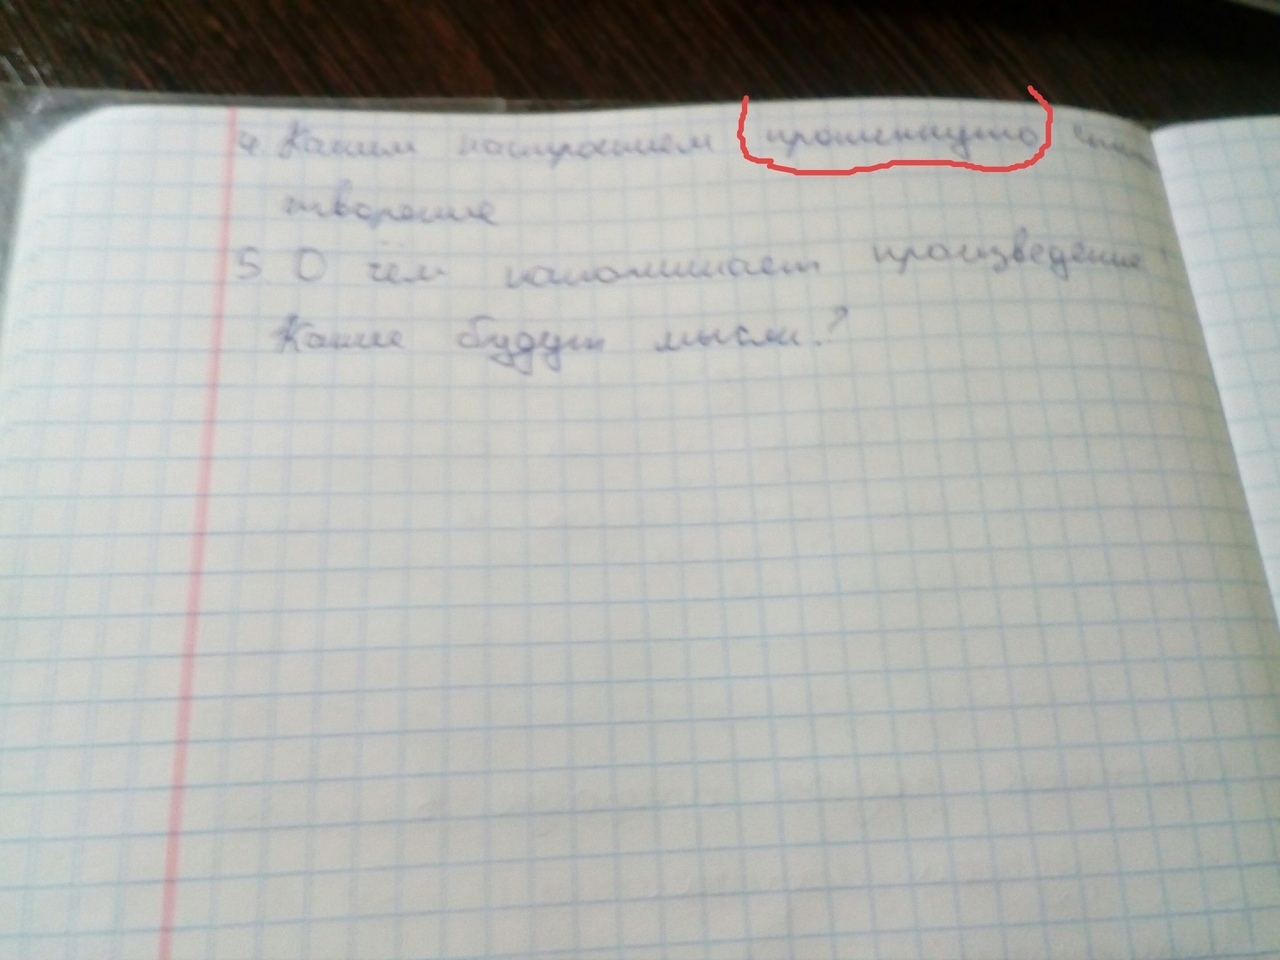 4. Каким настроением проникнуто сти
творение
5. О чём напоминает произведение?
Какие будут мысли?